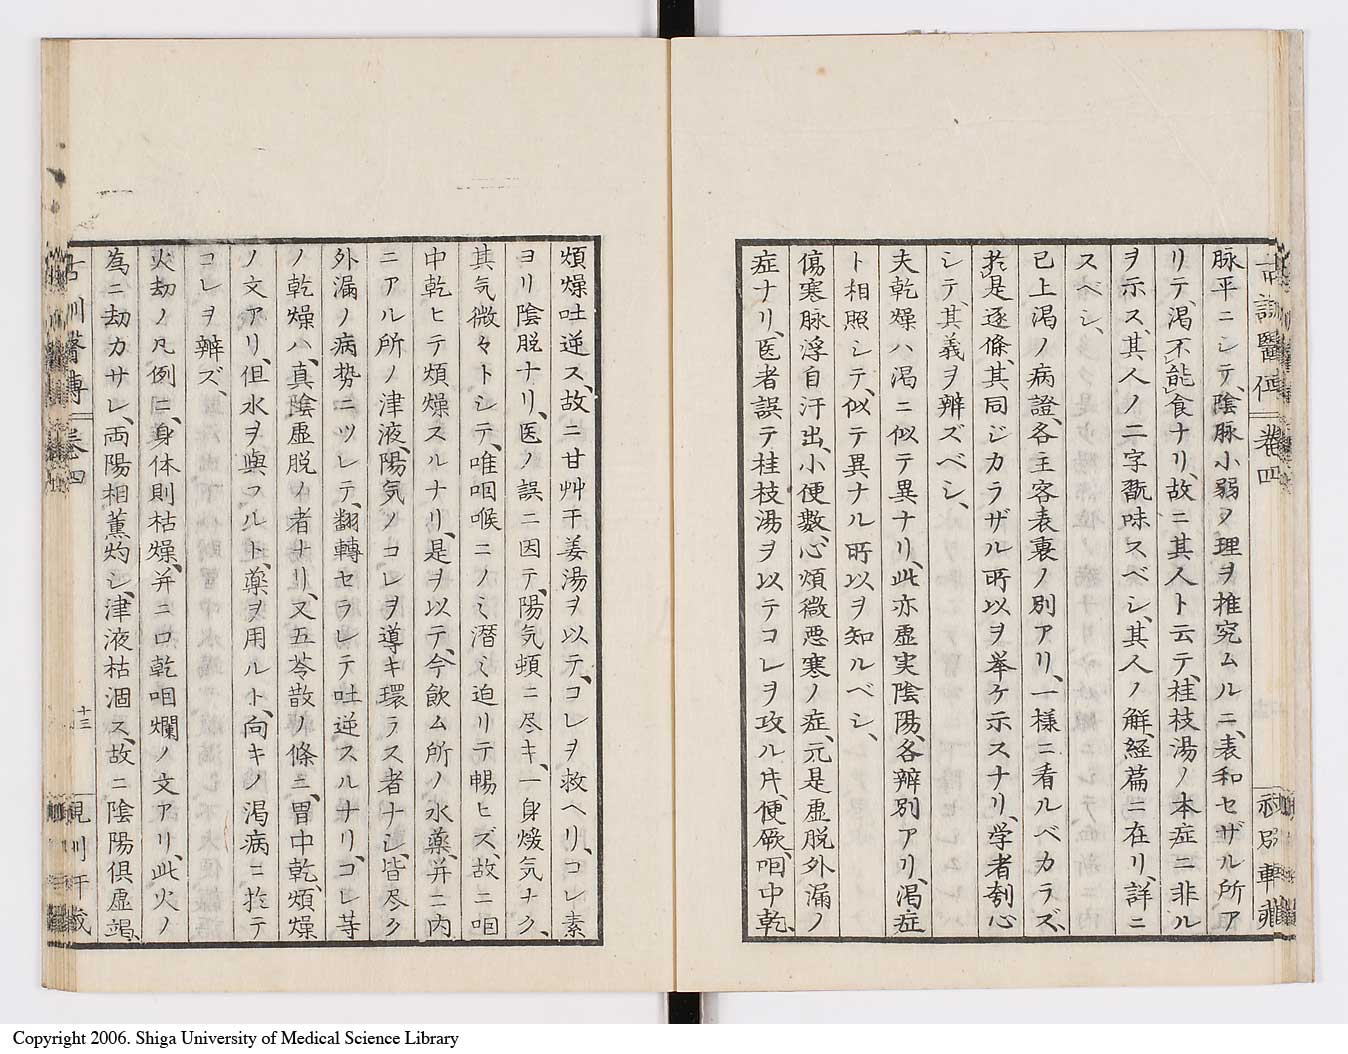 脉平ニシテ、陰脉小弱ノ理ヲ推究ムルニ、表和セザル所ア
リテ、渇不能食ナリ、故ニ其人ト云テ、桂枝湯ノ本症ニ非ル
ヲ示ス、其人ノ二字翫味スベシ、其人ノ解、経篇ニ在リ、詳ニ
スベシ、
已上渇ノ病證、各主客表裏ノ別アリ、一様ニ看ルベカラズ、
於是逐條、其同ジカラザル所以ヲ挙ケ示スナリ、学者刻心
シテ、其義ヲ辨ズベシ、
夫乾燥ハ渇ニ似テ異ナリ、此亦虚実陰陽、各辨別アリ、渇症
ト相照シテ、似テ異ナル所以ヲ知ルベシ、
傷寒脉浮自汗出、小便數、心煩微悪寒ノ症、元是虚脱外漏ノ
症ナリ、医者誤テ桂枝湯ヲ以テコレヲ攻ル片、便厥、咽中乾、
煩燥吐逆ス、故ニ甘艸干姜湯ヲ以テ、コレヲ救ヘリ、コレ素
ヨリ陰脱ナリ、医ノ誤ニ因テ、陽気頓ニ尽キ、一身煖気ナク、
其気微々トシテ、唯咽喉ニノミ潜ミ迫リテ暢ヒズ、故ニ咽
中乾ヒテ煩燥スルナリ、是ヲ以テ、今飲ム所ノ水藥、并ニ内
ニアル所ノ津液、陽気ノコレヲ導キ環ラス者ナシ、皆尽ク
外漏ノ病勢ニツレテ、翻轉セラレテ吐逆スルナリ、コレ等
ノ乾燥ハ、真陰虚脱ノ者ナリ、又五苓散ノ條ニ、胃中乾、煩燥
ノ文アリ、但水ヲ與フルト、藥ヲ用ルト、向キノ渇病ニ於テ
コレヲ辨ズ、
火劫ノ凡例ニ、身体則枯燥、并ニ口乾咽爛ノ文アリ、此火ノ
為ニ劫カサレ、両陽相薫灼シ、津液枯涸ス、故ニ陰陽倶虚竭、
古訓醫傳 巻四
十三
Copyright 2006. Shiga University of Medical Science Library